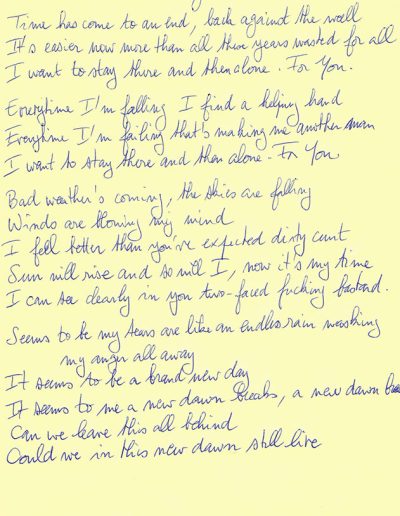 Time has come to an end, back against the wall
It's easier now more than all these years wasted for all
I want to stay there and then alone. For You.
Everytime I'm falling I find a helping hand
Everytime I'm failing that's making me another man
I want to stay there and then alone. For You
Bad weather's coming, the skies are falling
Winds are blowing my mind
I feel better than you've expected dirty cunt
Sun will rise and so will I, now it's my time
I can see clearly in you two-faced fucking bastard.
Seems to be my tears are like an endless rain washing
my anger all away
It seems to be a brand new day
It seems to me a new dawn breaks, a new dawn
Can we leave this all behind
Could we in this new dawn still live